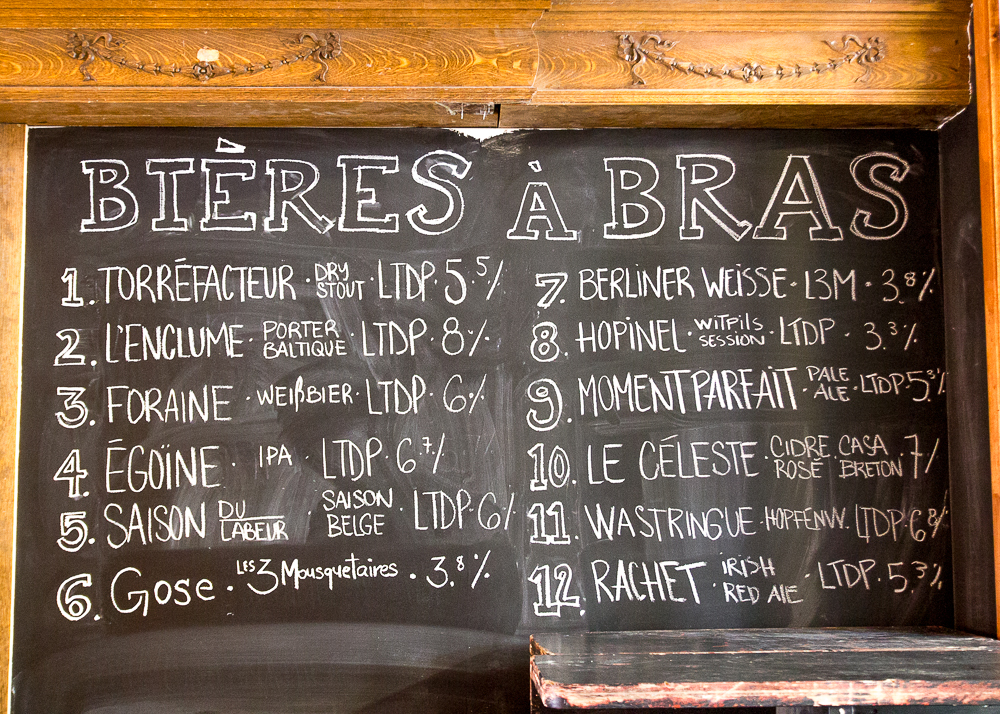 BIÈRES À BRAS
1. TORRÉFACTEUR · DRY STOUT · LTDP · 5.5%
2. L'ENCLUME · PORTER BALTIQUE · LTDP · 8%
3. FORAINE · WEIßBIER · LTDP · 6%
4. ÉGOÏNE · IPA · LTDP · 6.7%
5. SAISON DU LABEUR · SAISON BELGE · LTDP · 6%
6. Gose · LES 3 Mousquetaires · 3.8%
7. BERLINER WEISSE · L3M · 3.8%
8. HOPINEL · WITPILS SESSION · LTDP · 3.3%
9. MOMENT PARFAIT · PALE ALE · LTDP 5.3%
10. LE CÉLESTE · CIDRE ROSÉ · CASA BRETON · 7%
11. WASTRINGUE · HOPFENW. LTDP · 6.8%
12. RACHET · IRISH RED ALE · LTDP · 5.3%